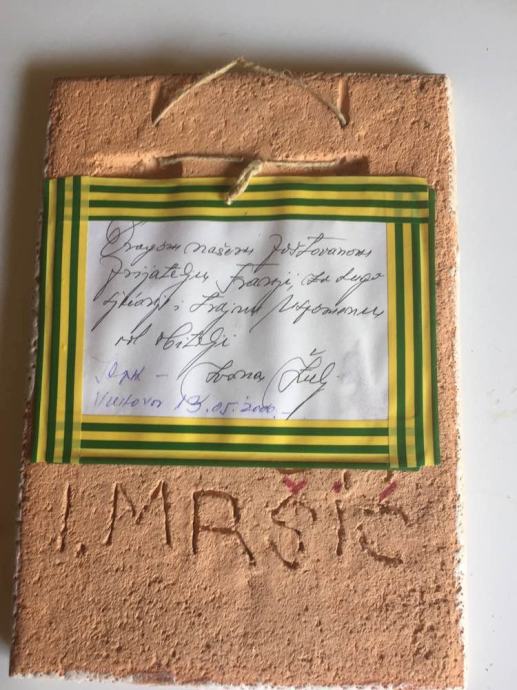 Dragom našem poštovanom
prijatelju Franji, za dugo
sjećanje i trajnu uspomenu
od obitelji
Ivana Žulj
Vukovar 13.05.2000.
I. MRŠIĆ